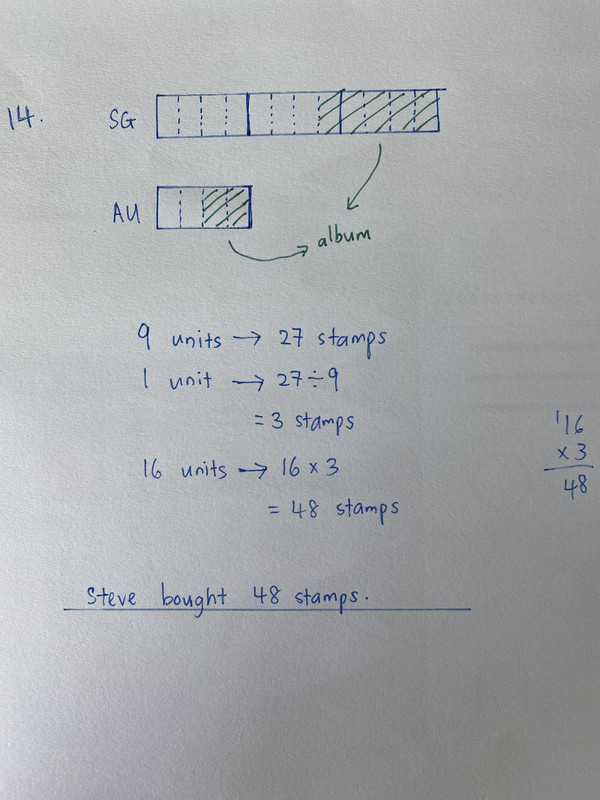 14. SG
AU
album
9 units → 27 stamps
1 unit → 27÷9
= 3 stamps
16 units → 16 × 3
= 48 stamps
¹16
× 3
48
Steve bought 48 stamps.